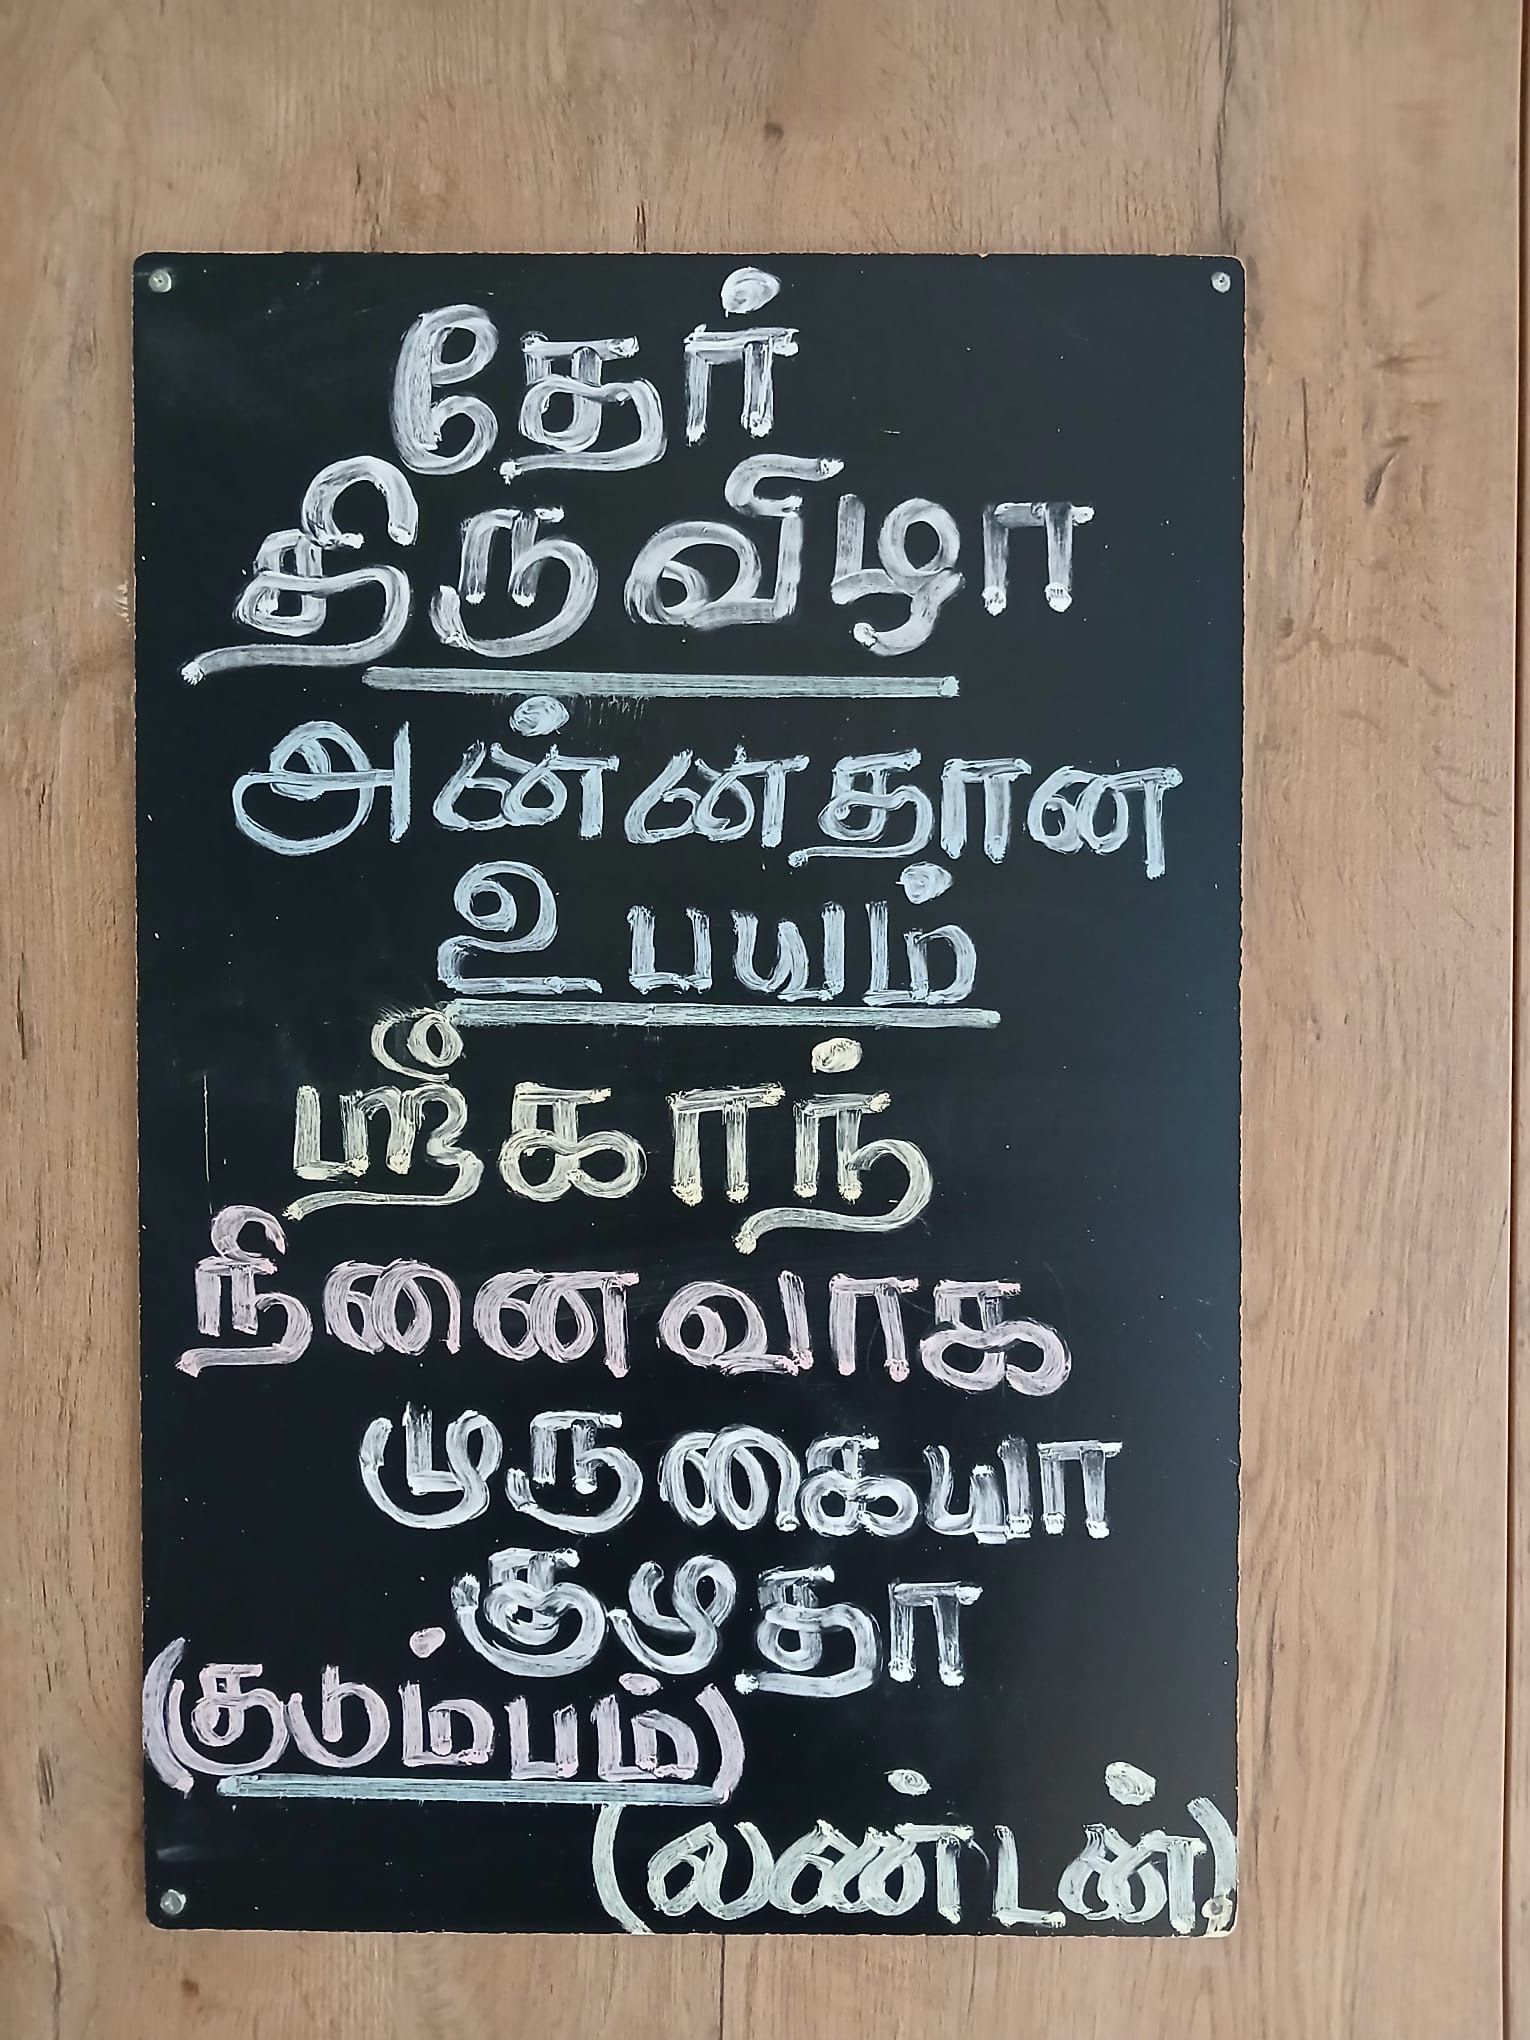 தேர்
திருவிழா
அன்னதான
உபயம்
ஸ்ரீகாந்
நினைவாக
முருகையா
குழதா
(குடும்பம்)
(லண்டன்)